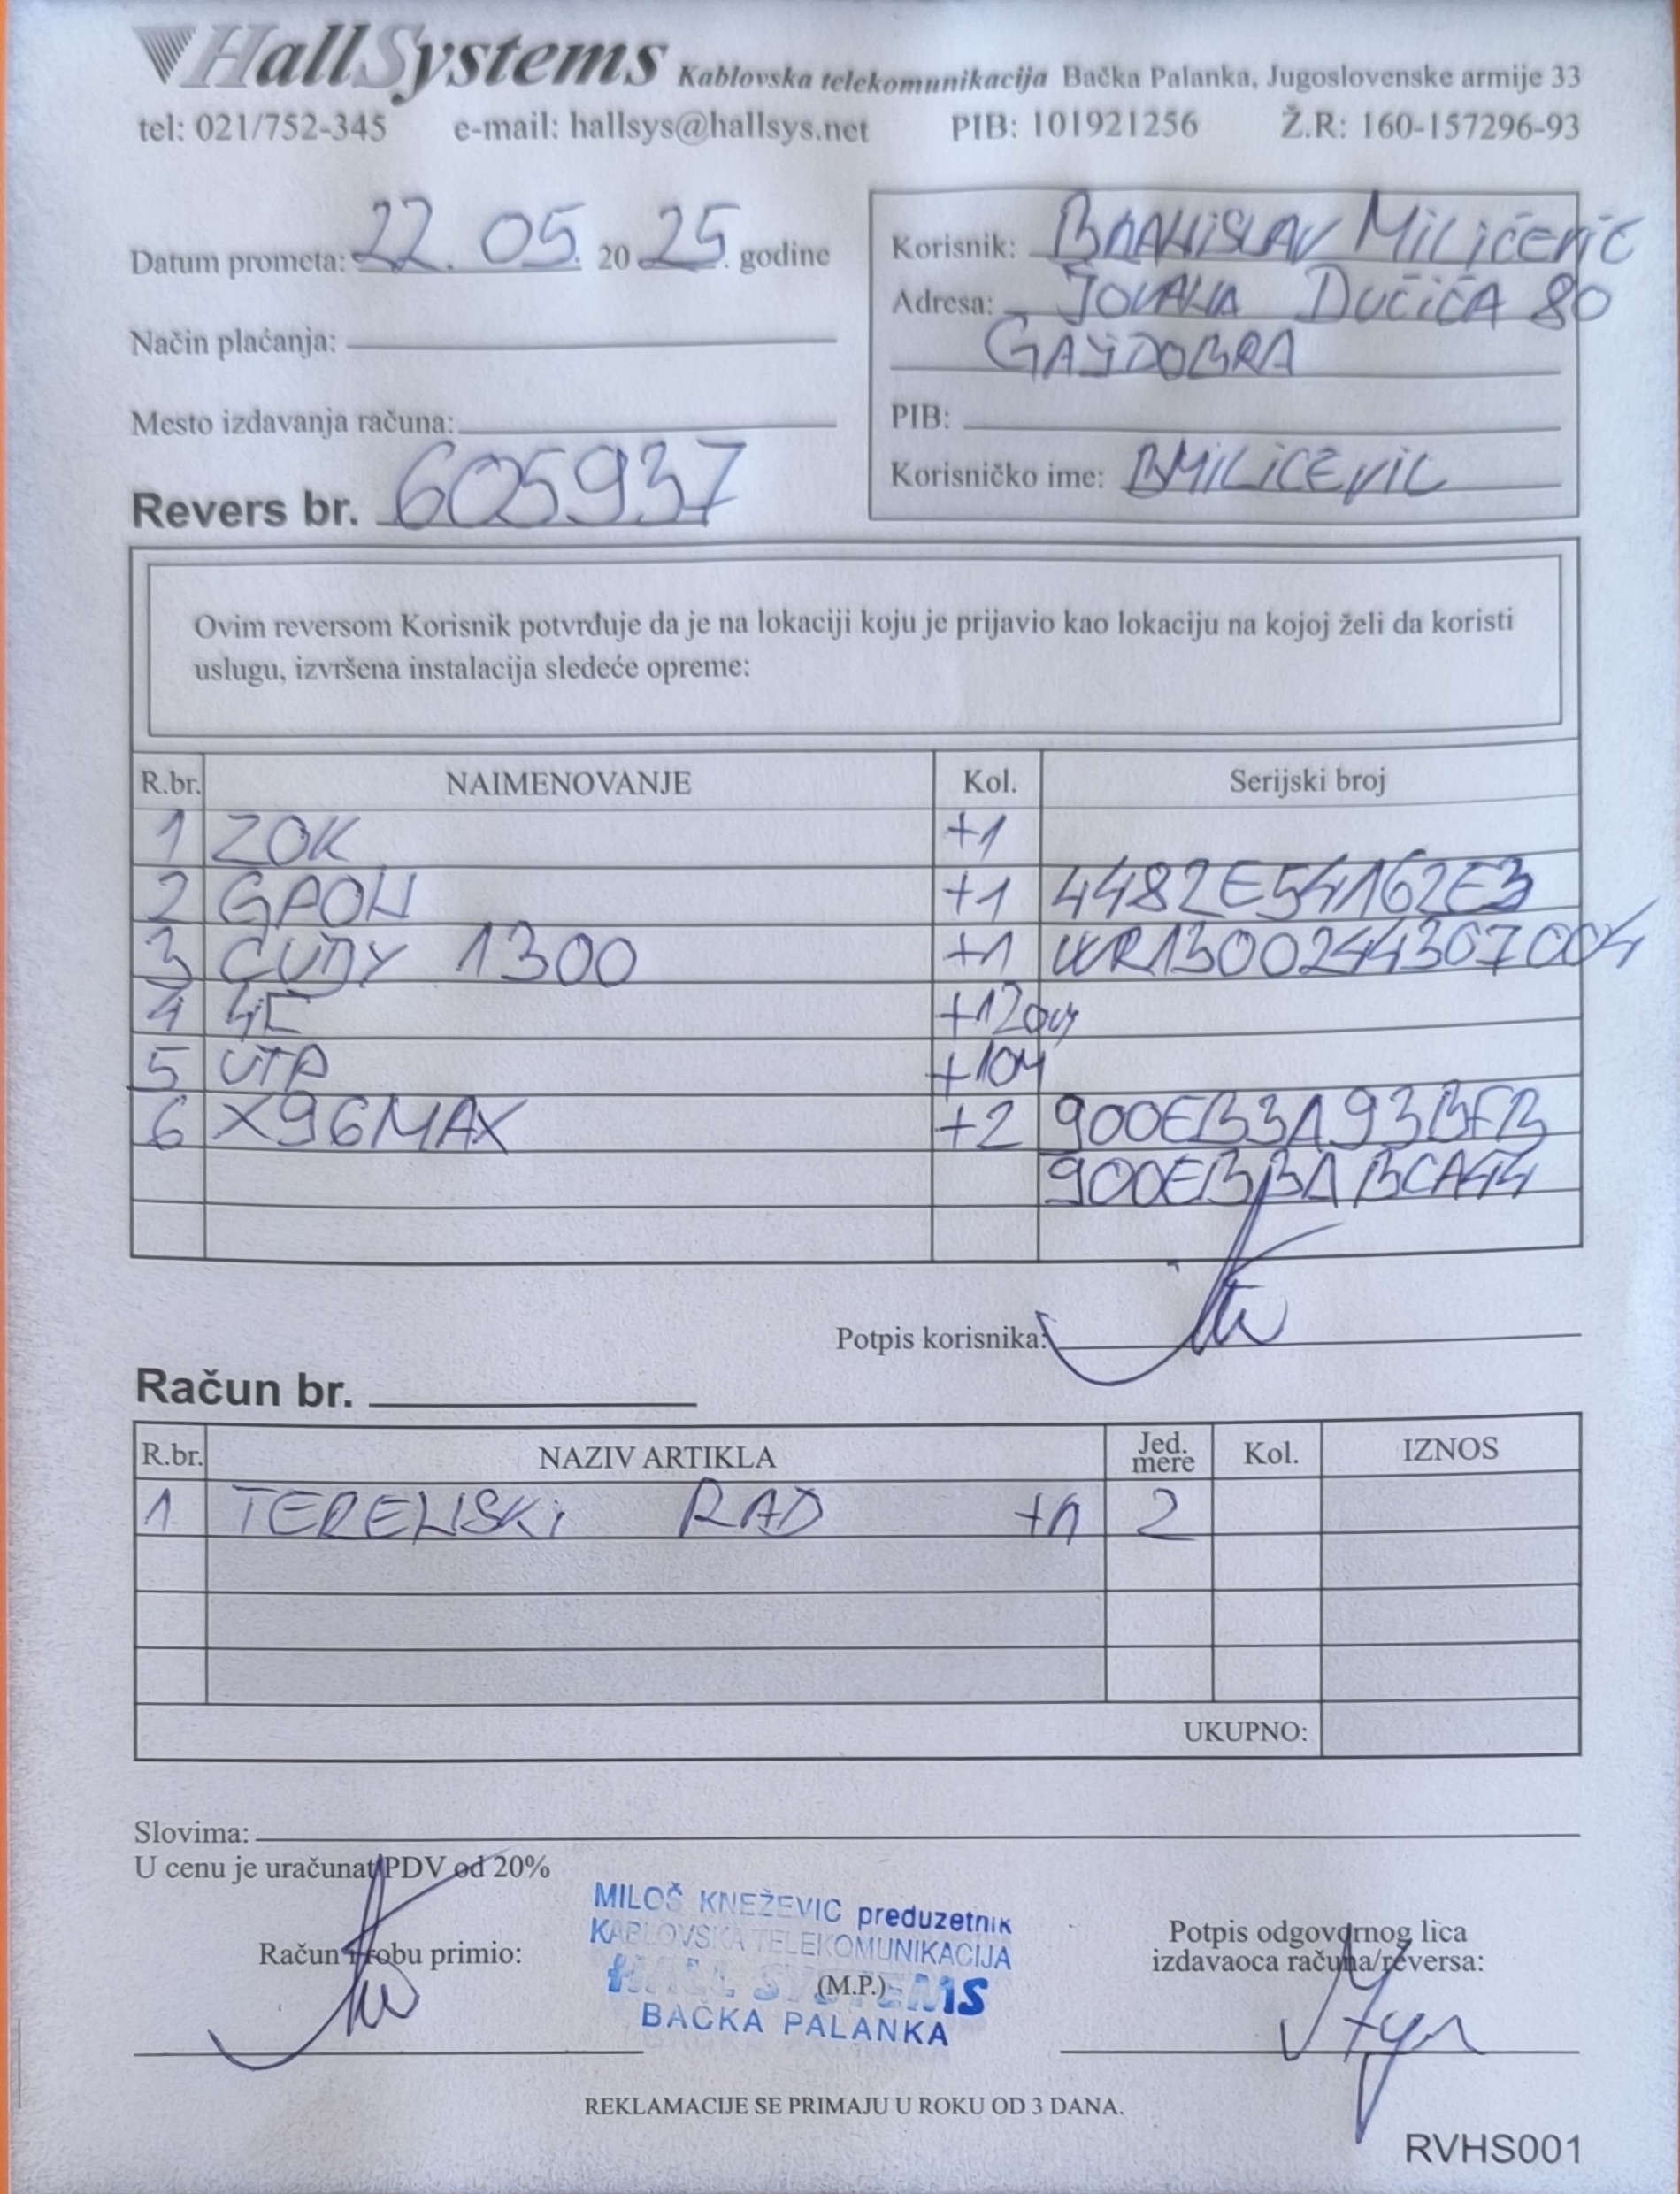 HallSystems Kablovska telekomunikacija Bačka Palanka, Jugoslovenske armije 33
tel: 021/752-345 e-mail: hallsys@hallsys.net PIB: 101921256 Ž.R: 160-157296-93
Datum prometa: 22. 05. 20 25. godine
Način plaćanja:
Mesto izdavanja računa:
Revers br. 605937
Korisnik: BRANISLAV MILIĆEVIĆ
Adresa: JOVANA DUČIĆA 80
GAJDOBRA
PIB:
Korisničko ime: BMILICEVIC
Ovim reversom Korisnik potvrđuje da je na lokaciji koju je prijavio kao lokaciju na kojoj želi da koristi
uslugu, izvršena instalacija sledeće opreme:
R.br. NAIMENOVANJE Kol. Serijski broj
1 ZOK +1
2 GPON +1 4482E54162E3
3 CUDY 1300 +1 WR1300244307004
4 4C +120m
5 UTP +10m
6 X96MAX +2 900EB3A93BFB
900EB3BABCA44
Potpis korisnika:
Račun br.
R.br. NAZIV ARTIKLA Jed. mere Kol. IZNOS
1 TERENSKI RAD +1 2
UKUPNO:
Slovima:
U cenu je uračunat PDV od 20%
Račun i robu primio:
MILOŠ KNEŽEVIĆ preduzetnik
KABLOVSKA TELEKOMUNIKACIJA
HALL SYSTEMS
(M.P.)
BAČKA PALANKA
Potpis odgovornog lica
izdavaoca računa/reversa:
REKLAMACIJE SE PRIMAJU U ROKU OD 3 DANA.
RVHS001